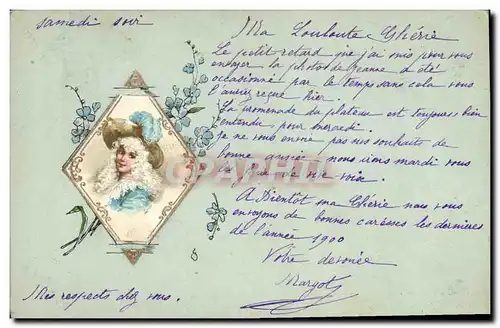 samedi soir
Ma Louloute Chérie
Le petit retard que j'ai mis pour vous
envoyer la photo de Jeanne a été
occasionné par le temps sans cela vous
l'auriez reçue hier.
La promenade du plateau est toujours bien
entendu pour mercredi.
je ne vous envoie pas nos souhaits de
bonne année nous irons mardi vous
les de vive voix.
A Bientôt ma Chérie nous vous
envoyons de bonnes caresses les dernières
de l'année 1900
Votre dévouée
Margot
Mes respects chez vous.
CPAPHIL